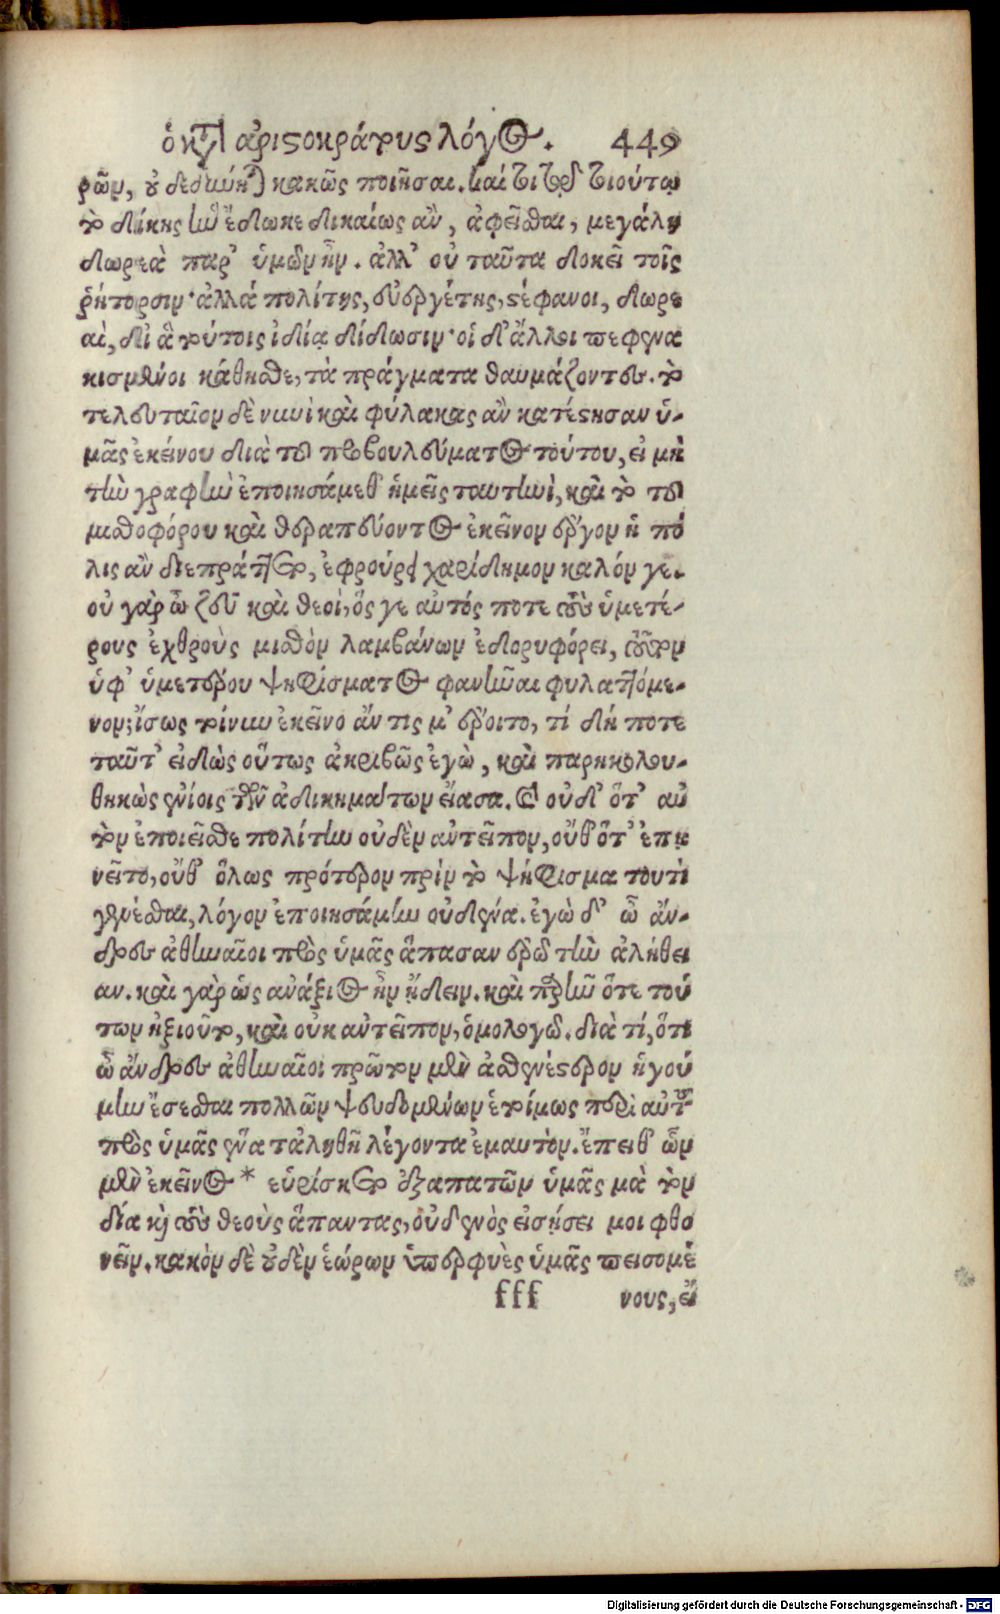 ὁ κατὰ ἀριστοκράτους λόγος. 449
ρῶν, οὐ δεδύνηται κακῶς ποιῆσαι. καίτοι τῷ γε τοιούτῳ
τὸ δίκης ἣν ἔδωκε δικαίως ἂν, ἀφεῖσθαι, μεγάλη
δωρεὰ παρ' ὑμῶν ἦν. ἀλλ' οὐ ταῦτα δοκεῖ τοῖς
ῥήτορσιν· ἀλλὰ πολίτης, εὐεργέτης, στέφανοι, δωρε
αὶ, δι' ἃ τούτοις ἰδίᾳ δίδωσιν· οἱ δ' ἄλλοι πεφενα
κισμένοι κάθησθε, τὰ πράγματα θαυμάζοντες. τὸ
τελευταῖον δὲ νυνὶ καὶ φύλακας ἂν κατέστησαν ὑ-
μᾶς ἐκείνου διὰ τοῦ προβουλεύματος τούτου, εἰ μὴ
τὴν γραφὴν ἐποιησάμεθ' ἡμεῖς ταυτηνὶ, καὶ τὸ τοῦ
μισθοφόρου καὶ θεραπεύοντος ἐκεῖνον ἔργον ἡ πό
λις ἂν διεπράττετο, ἐφρούρει χαρίδημον καλόν γε.
οὐ γὰρ ὦ ζεῦ καὶ θεοὶ, ὅς γε αὐτός ποτε τοὺς ὑμετέ-
ρους ἐχθροὺς μισθὸν λαμβάνων ἐδορυφόρει, τοῦτον
ὑφ' ὑμετέρου ψηφίσματος φανῆναι φυλαττόμε-
νον; ἴσως τοίνυν ἐκεῖνο ἄν τις μ' ἔροιτο, τί δή ποτε
ταῦτ' εἰδὼς οὕτως ἀκριβῶς ἐγὼ, καὶ παρηκολου-
θηκὼς ἐνίοις τῶν ἀδικημάτων εἴασα. καὶ οὐδ' ὅτ' αὐ
τὸν ἐποιεῖσθε πολίτην οὐδὲν ἀντεῖπον, οὔθ' ὅτ' ἐπῃ
νεῖτο, οὔθ' ὅλως πρότερον πρὶν τὸ ψήφισμα τουτὶ
γενέσθαι, λόγον ἐποιησάμην οὐδένα. ἐγὼ δ' ὦ ἄν-
δρες ἀθηναῖοι πρὸς ὑμᾶς ἅπασαν ἐρῶ τὴν ἀλήθει
αν. καὶ γὰρ ὡς ἀνάξιος ἦν ᾔδειν. καὶ παρῆν ὅτε τού
των ἠξιοῦτο, καὶ οὐκ ἀντεῖπον, ὁμολογῶ. διὰ τί, ὅτι
ὦ ἄνδρες ἀθηναῖοι πρῶτον μὲν ἀσθενέστερον ἡγού
μην ἔσεσθαι πολλῶν ψευδομένων ἑτοίμως περὶ αὐτοῦ
πρὸς ὑμᾶς ἕνα τἀληθῆ λέγοντα ἐμαυτὸν. ἔπειθ' ὧν
μὲν ἐκεῖνος * εὑρίσκετο ἐξαπατῶν ὑμᾶς μὰ τὸν
δία καὶ τοὺς θεοὺς ἅπαντας, οὐδενὸς εἰσῄσει μοι φθο
νεῖν. κακὸν δὲ οὐδὲν ἑώρων ὑπερφυὲς ὑμᾶς πεισομέ
fff νους, εἴ
Digitalisierung gefördert durch die Deutsche Forschungsgemeinschaft - DFG